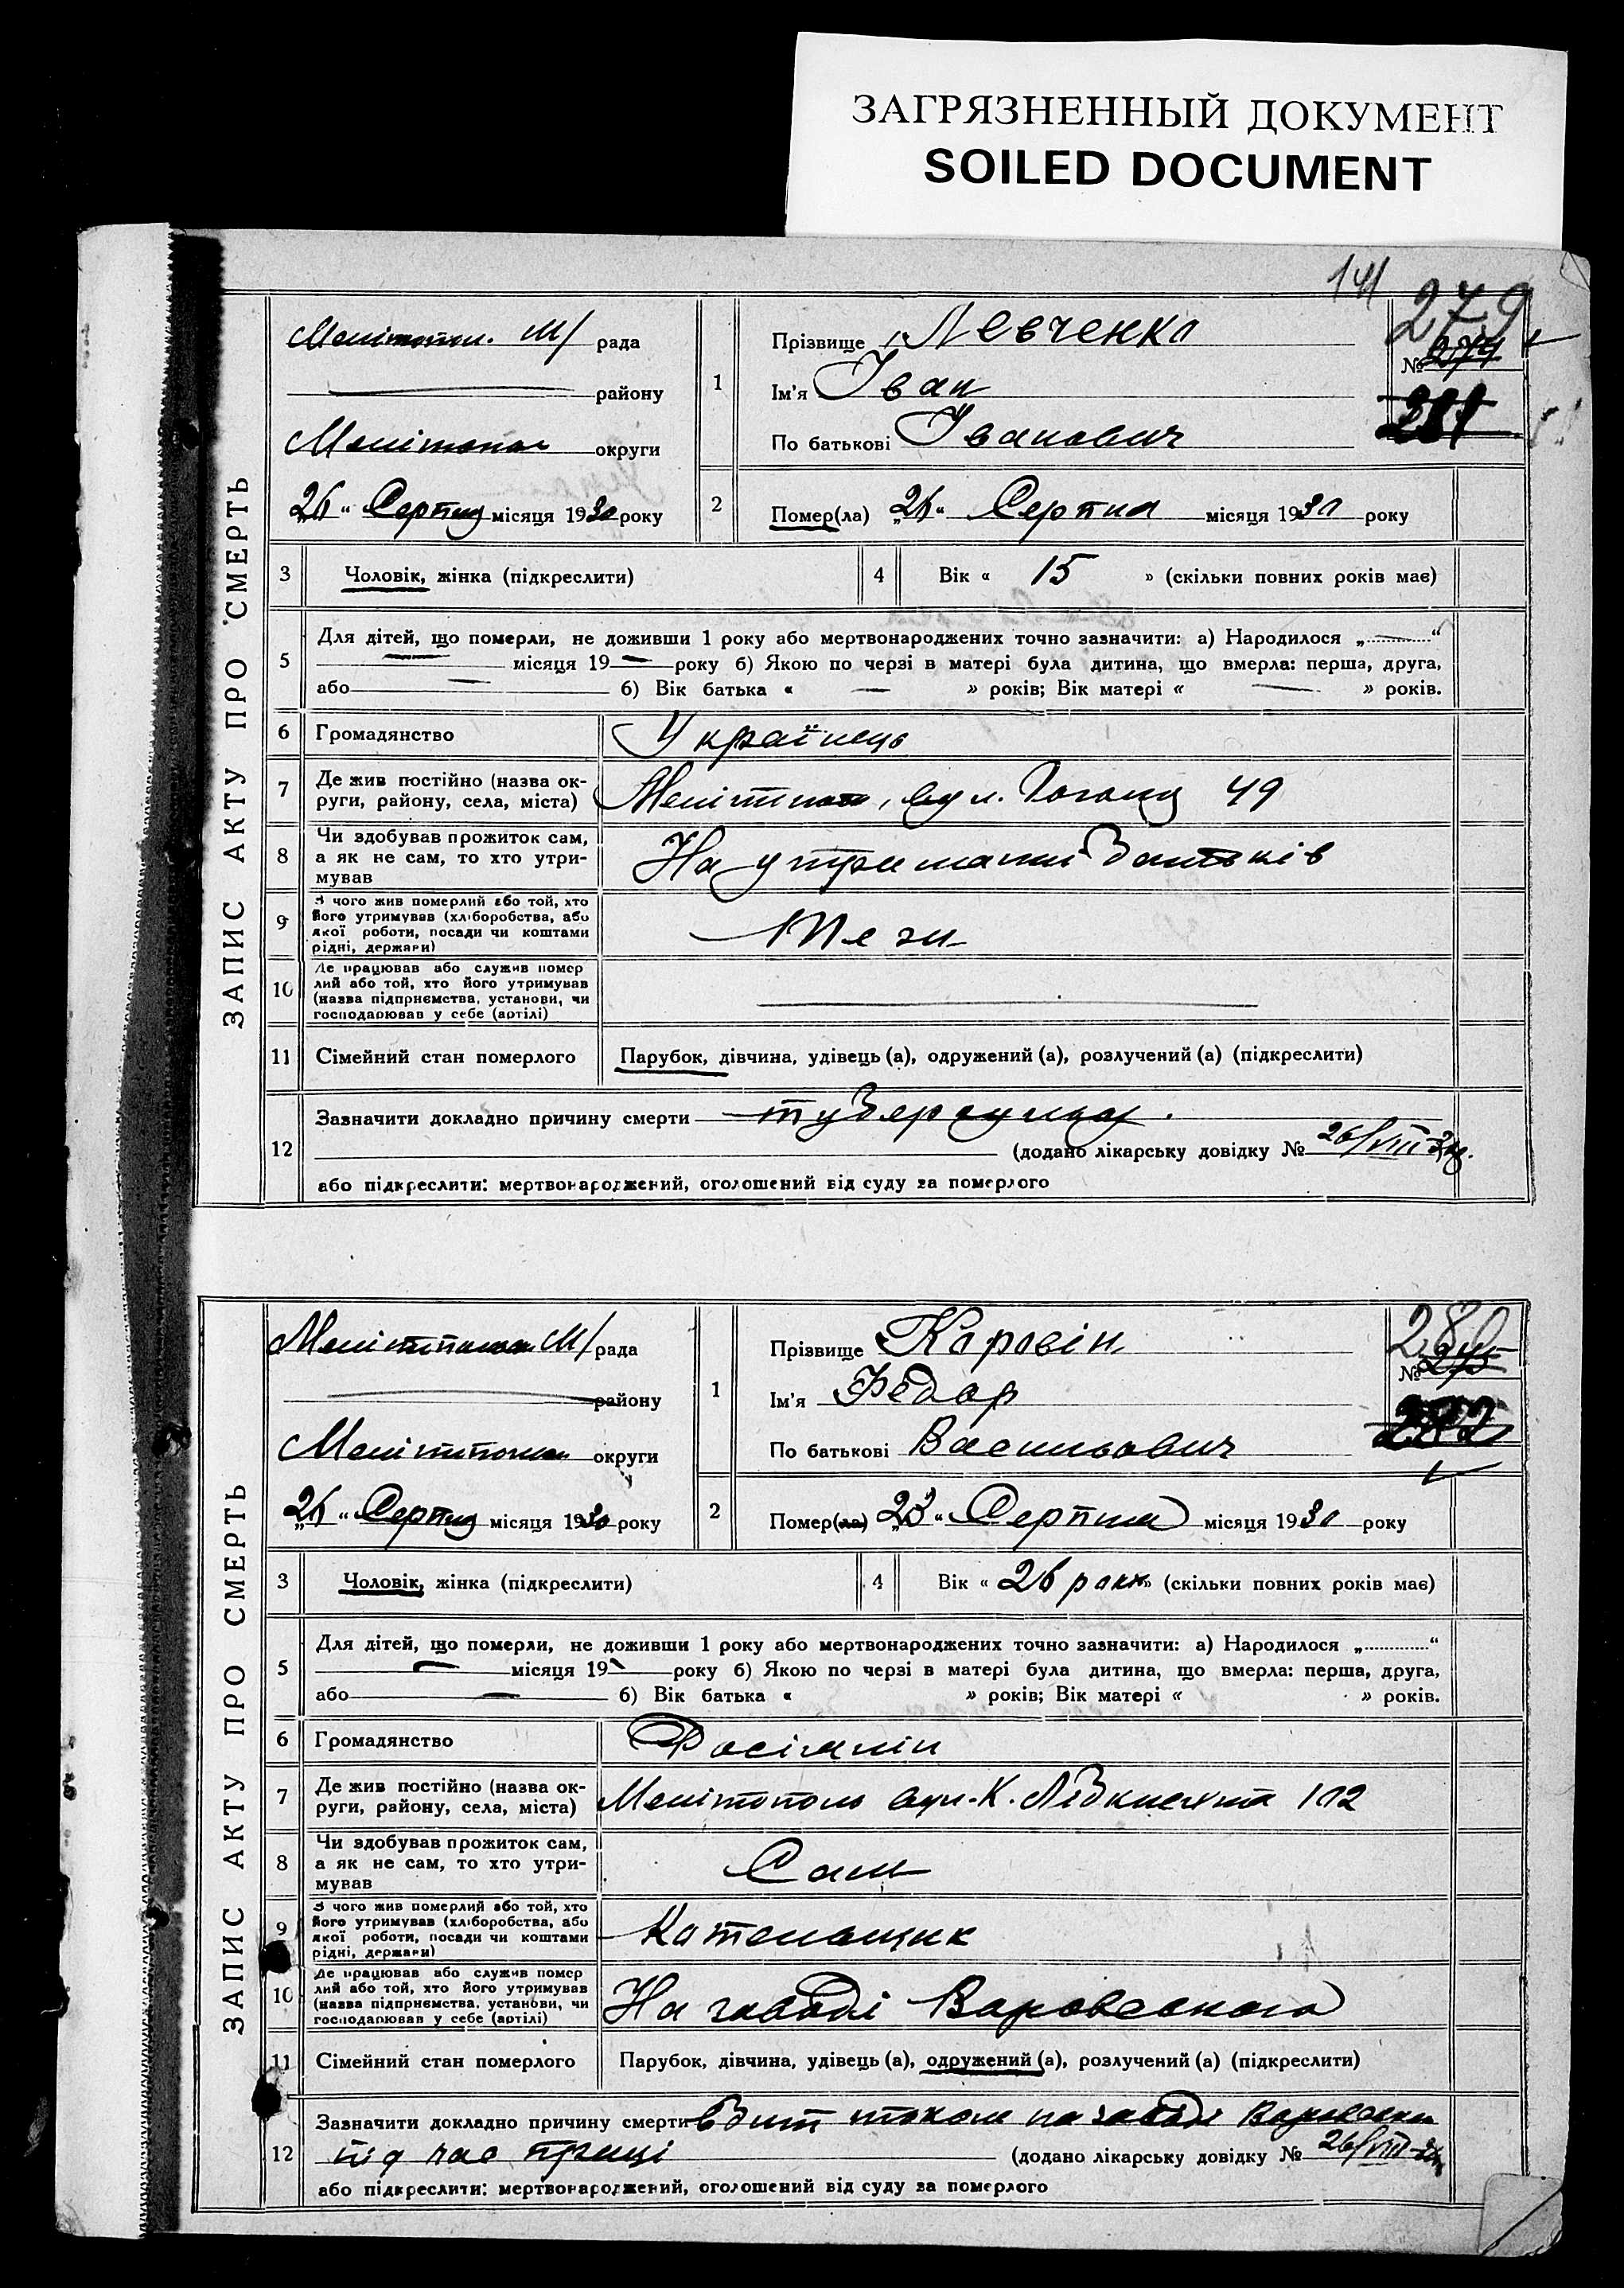 ЗАГРЯЗНЕННЫЙ ДОКУМЕНТ
SOILED DOCUMENT
141
279
ЗАПИС АКТУ ПРО СМЕРТЬ
Мелітопол. М/ рада
району
Мелітополь округи
„26“ Серпня місяця 1930 року
1
Прізвище Левченко
Ім'я Іван
По батькові Іванович
№ 274
281
2
Помер(ла) „26“ Серпня місяця 1930 року
3 Чоловік, жінка (підкреслити)
4 Вік « 15 » (скільки повних років має)
5
Для дітей, що померли, не доживши 1 року або мертвонароджених точно зазначити: а) Народилося „ — “
— місяця 19 — року б) Якою по черзі в матері була дитина, що вмерла: перша, друга,
або — б) Вік батька « — » років; Вік матері « — » років.
6 Громадянство Українець
7 Де жив постійно (назва ок-
руги, району, села, міста) Мелітополь, вул. Гоголя 49
8 Чи здобував прожиток сам,
а як не сам, то хто утри-
мував На утриманні батьків
9 З чого жив померлий або той, хто
його утримував (хліборобства, або
якої роботи, посади чи коштами
рідні, держави)
10 Де працював або служив помер
лий або той, хто його утримував
(назва підприємства, установи, чи
господарював у себе (артілі)
11 Сімейний стан померлого Парубок, дівчина, удівець (а), одружений (а), розлучений (а) (підкреслити)
12
Зазначити докладно причину смерти туберкульоз.
(додано лікарську довідку № 26/VIII-30р.
або підкреслити: мертвонароджений, оголошений від суду за померлого
ЗАПИС АКТУ ПРО СМЕРТЬ
Мелітополь М/ рада
району
Мелітополь округи
„26“ Серпня місяця 1930 року
1
Прізвище Коровін
Ім'я Федор
По батькові Васильович
280
№ 275
282
2
Помер(ла) „23“ Серпня місяця 1930 року
3 Чоловік, жінка (підкреслити)
4 Вік « 26 рокі » (скільки повних років має)
5
Для дітей, що померли, не доживши 1 року або мертвонароджених точно зазначити: а) Народилося „ “
— місяця 19 — року б) Якою по черзі в матері була дитина, що вмерла: перша, друга,
або — б) Вік батька « » років; Вік матері « » років.
6 Громадянство Росіянін
7 Де жив постійно (назва ок-
руги, району, села, міста) Мелітополь вул. К. Лібкнехта 102
8 Чи здобував прожиток сам,
а як не сам, то хто утри-
мував Сам
9 З чого жив померлий або той, хто
його утримував (хліборобства, або
якої роботи, посади чи коштами
рідні, держави) Котельщик
10 Де працював або служив помер
лий або той, хто його утримував
(назва підприємства, установи, чи
господарював у себе (артілі) На заводі Воровського
11 Сімейний стан померлого Парубок, дівчина, удівець (а), одружений (а), розлучений (а) (підкреслити)
12
Зазначити докладно причину смерти вбит током на заводі Воровськ
під час праці (додано лікарську довідку № 26/VIII-30
або підкреслити: мертвонароджений, оголошений від суду за померлого